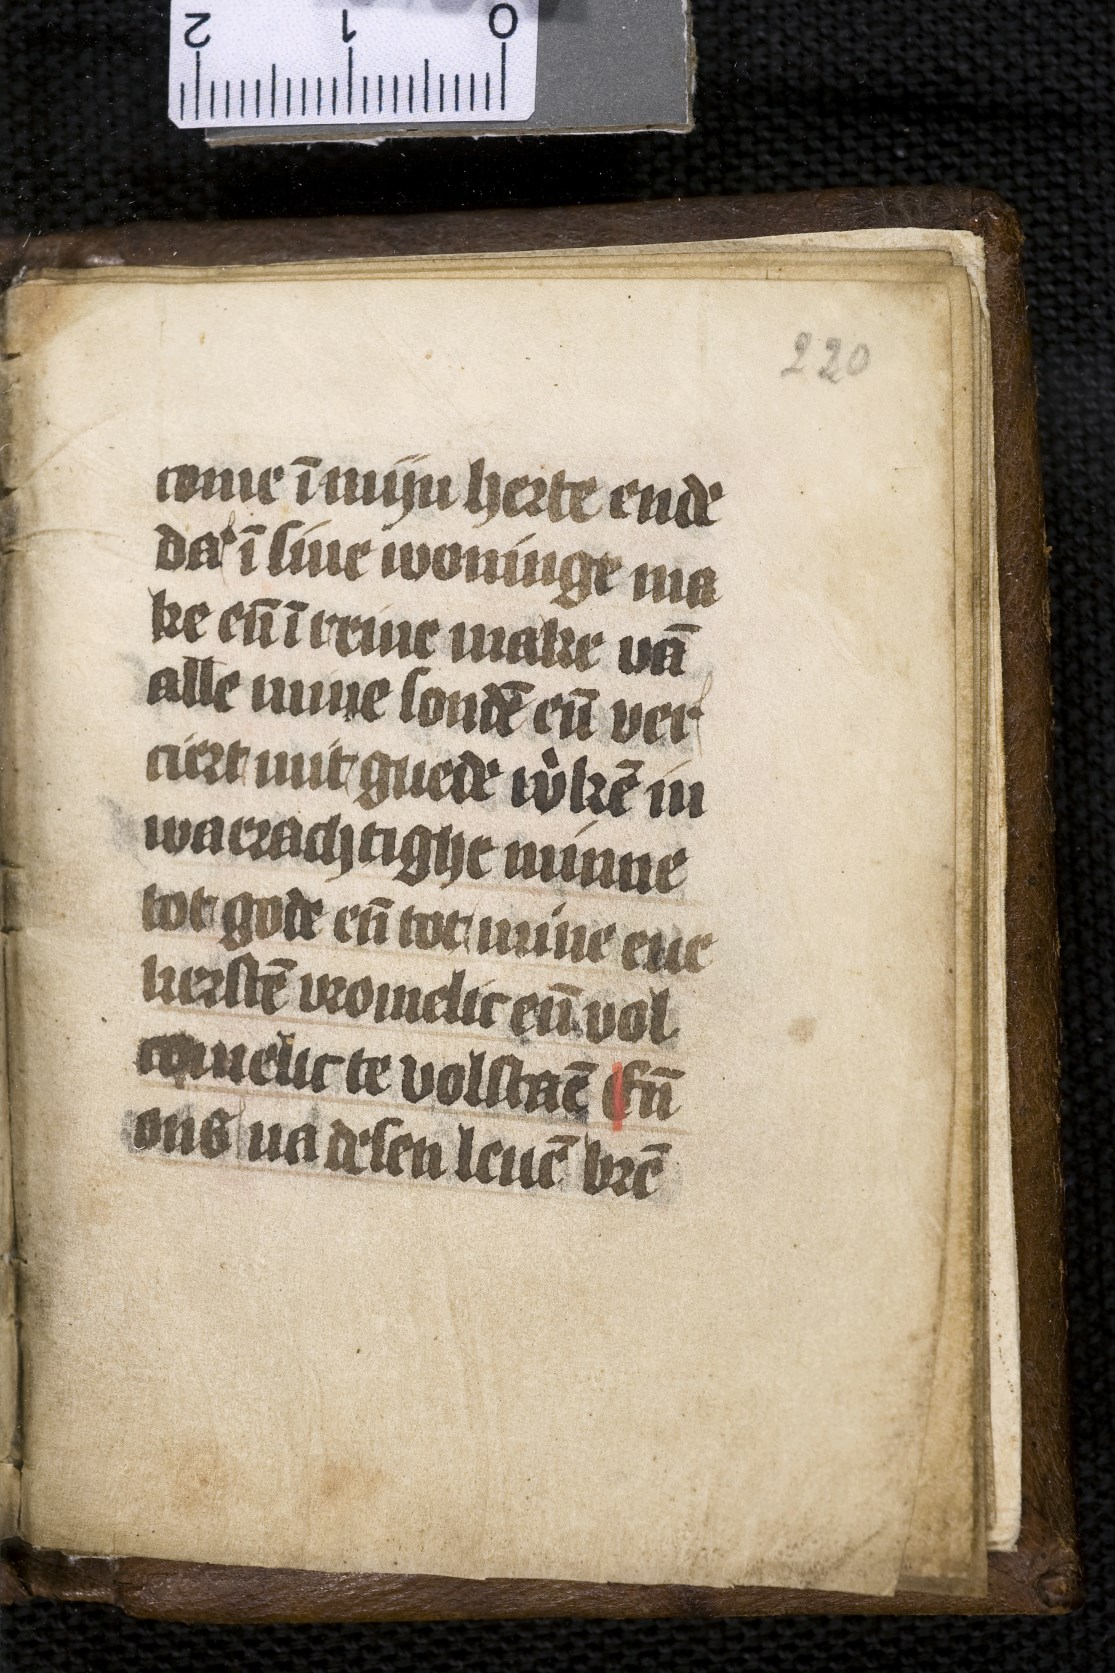 2 1 0
220
come ī mijn herte ende
daͬ ī sine woninge ma
ke en̄ ī reine make vā
alle mine sondē en̄ ver
ciert mit guede wͦkē in
waerachtighe minne
tot gode en̄ tot mine eue
kerstē vromelic en̄ vol
comelic te volstaē En̄
ons na desen leuē brē